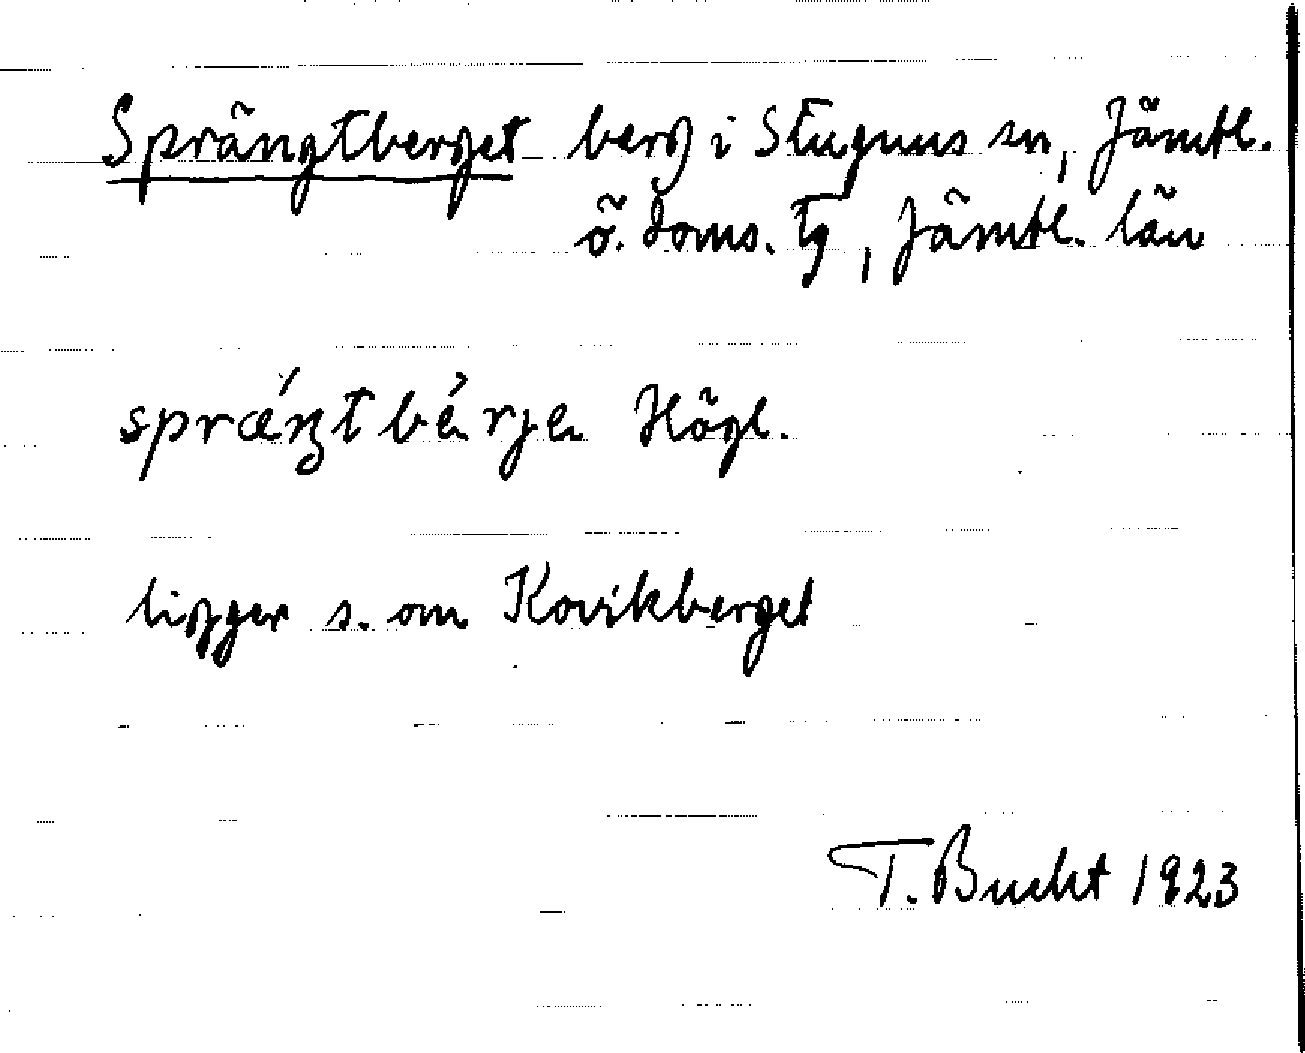 Sprängtberget berg i Stuguns sn, Jämtl.
ö. doms. tg, Jämtl. län
Högl.
ligger s. om Kovikberget
T. Bucht 1923